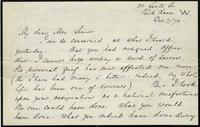 35 South St.
Park Lane W
Dec 7/74
My dear Mrs Senior
I am so concerned at what I heard
yesterday that you had resigned office
that I cannot help writing a word of sorrow
No personal grief has ever affected me more
tho' I have had many & bitter: indeed, my whole
life has been one of sorrows But I look
upon your resignation as a national misfortune
No one could have done what you would
have done what you indeed have done away